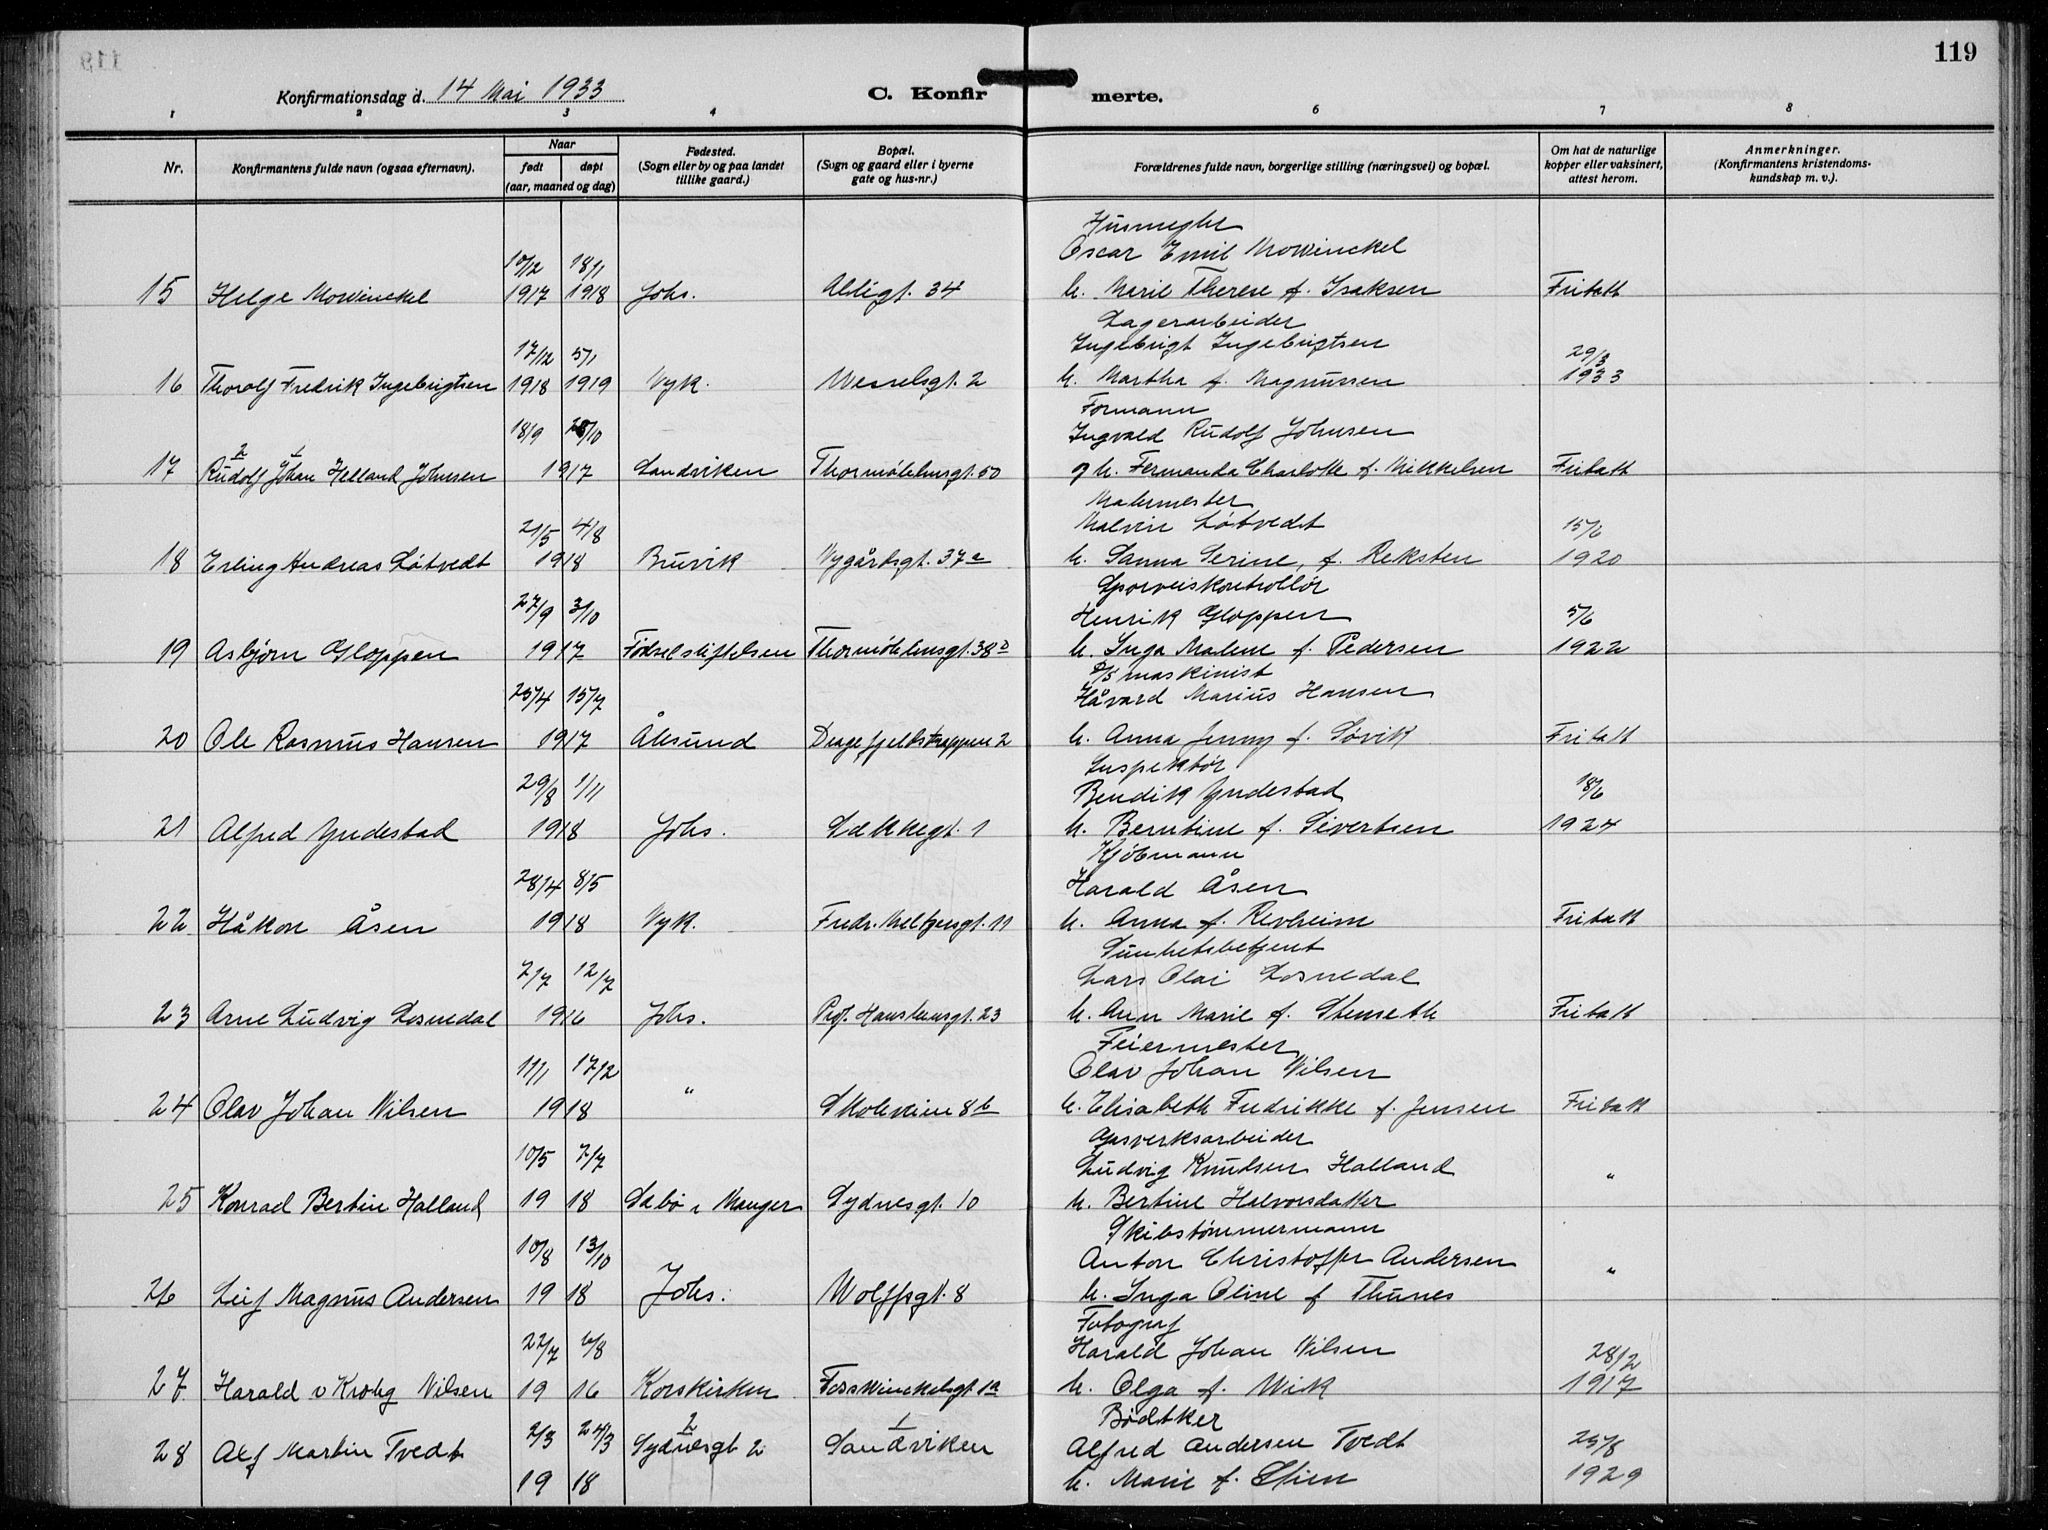 119
Konfirmationsdag d. 14 Mai 1933
C. Konfirmerte.
1 2 3 4 6 7 8
Nr.
Konfirmantens fulde navn (ogsaa efternavn).
Naar
født døpt
(aar, maaned og dag)
Fødested.
(Sogn eller by og paa landet
tillike gaard.)
Bopæl.
(Sogn og gaard eller i byerne
gate og hus-nr.)
Forældrenes fulde navn, borgerlige stilling (næringsvei) og bopæl.
Om hat de naturlige
kopper eller vaksinert,
attest herom.
Anmerkninger.
(Konfirmantens kristendoms-
kundskap m. v.).
Husmegler
10/12 18/1 Oscar Emil Mowinckel
15 Helge Mowinckel 1917 1918 Johs. Allégt. 34 h. Marie Therese f. Isaksen Fritatt
Lagerarbeider
17/12 5/1 Ingebrigt Ingebrigtsen 29/3
16 Thorolf Fredrik Ingebrigtsen 1918 1919 Nyk. Wesselsgt. 2 h. Martha f. Magnussen 1933
Formann
18/9 Ingvald Rudolf Johnsen
2 1
17 Rudolf Johan Helland Johnsen 1917 Sandviken Thormøhlensgt. 50 og h. Fernanda Charlotte f. Mikkelsen Fritatt
Malermester
21/5 4/8 Malvin Løtvedt 15/6
18 Erling Andreas Løtvedt 1918 Buvik Nygårdsgt. 37a h. Sanna Serine, f. Reksten 1920
Sporveiskontrollør
27/9 3/10 Henrik Gloppen 5/6
19 Asbjørn Gloppen 1917 Fødselsstiftelsen Thormøhlensgt. 38 h. Inga Malene f. Pedersen 1922
D/S maskinist
25/4 15/7 Håvard Marius Hansen
20 Ole Rasmus Hansen 1917 Ålesund Dragefjelltrappen 2 h. Anna Jenny f. Søvik Fritatt
Inspektør
29/8 1/11 Bendik Yndestad 18/6
21 Alfred Yndestad 1918 Johs. Løkkegt. 1 h. Berntine f. Sivertsen 1924
Kjøbmann
28/4 8/5 Harald Åsen
22 Håkon Åsen 1918 Nyk. Fredr. Meltzersgt. 11 h. Anna f. Revheim Fritatt
Sunhetsbetjent
7/7 12/7 Lars Olai Losnedal
23 Arne Ludvig Losnedal 1916 Johs. Prof. Hansteensgt. 23 h. Ann Marie f. Stenseth Fritatt
Feiermester
11/1 17/12 Olav Johan Nilsen
24 Olav Johan Nilsen 1918 " Skoleveien 8b h. Elisabeth Fredrikke f. Jensen Fritatt
Gasverksarbeider
10/5 7/7 Ludvig Knudsen Halland "
25 Konrad Bertin Halland 19 18 Sæbø i Manger Sydnesgt. 10 h. Bertine Halvorsdatter
Skibstømmermann
10/8 13/10 Anton Christoffer Andersen "
26 Leif Magnus Andersen 19 18 Johs. Wolffsgt. 8 h. Inga Oline f Thunes
Fotograf
22/7 6/8 Harald Johan Nilsen 28/2
27 Harald v Krohg Nilsen 19 16 Korskirken Fosswinckelsgt. 1a h. Olga f. Wiik 1917
Bødtker
2 1
28 Alf Martin Tvedt 2/3 24/3 Sydnesgt 2 Sandviken Alfred Andersen Tvedt 25/8
19 18 h. Marie f. Stien 1929